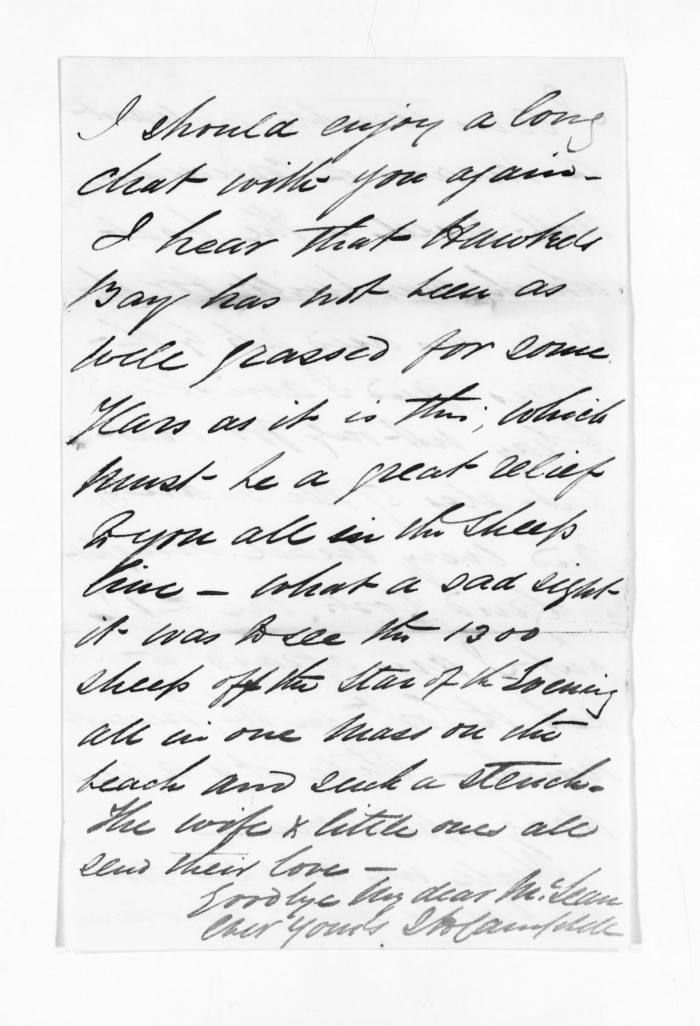 I should enjoy a long
chat with you again -
I hear that Hawkes
Bay has not been as
well grassed for some
Years as it is this, which
must be a great relief
to you all in the sheep
line - what a sad sight
it was to see the 1300
sheep off the Star of the Evening
all in one mass on the
beach and such a stench.
The wife & little ones all
send their love -
Goodbye My dear McLean
Ever Yours Campbell